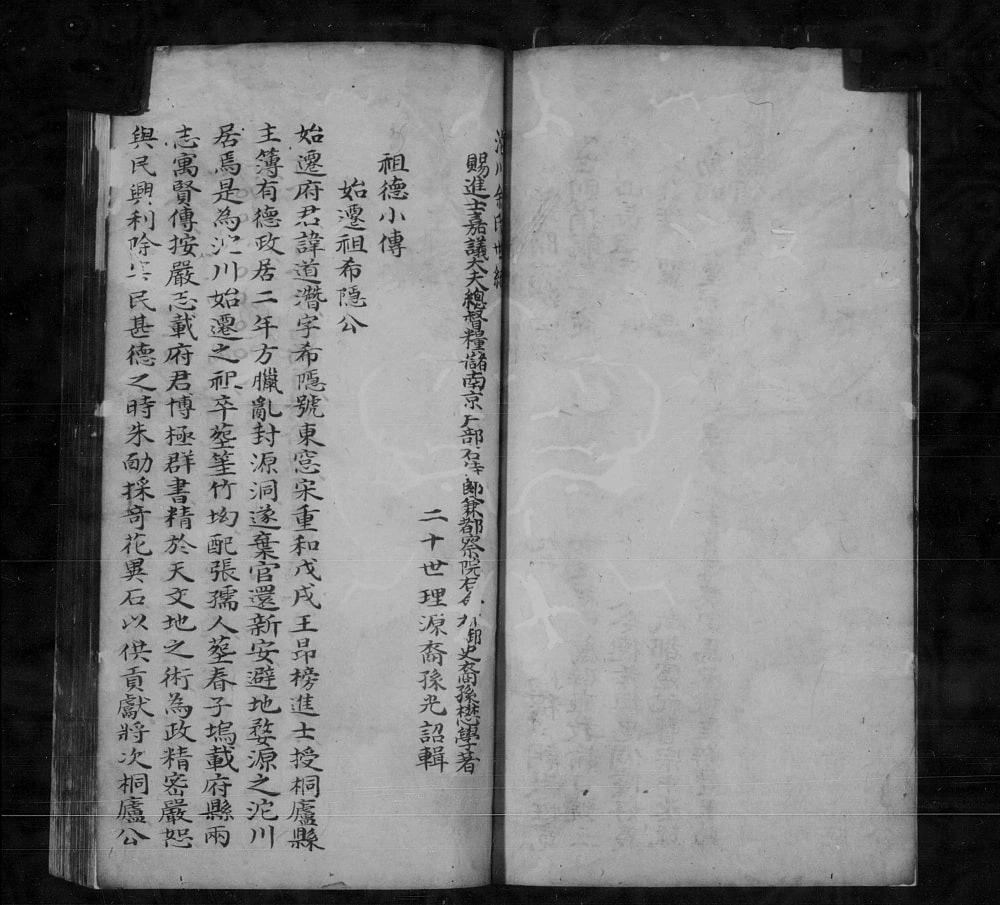 沱川余氏世
賜進士嘉議大夫總督糧儲南京戶部右侍郎兼都察院右僉都御史裔孫懋學著
二十世理源裔孫光詔輯
祖德小傳
始遷祖希隱公
始遷府君諱道潛字希隱號東窓宋重和戊戌王昂榜進士授桐廬縣
主簿有德政居二年方臘亂封源洞遂棄官還新安避地婺源之沱川
居焉是為沱川始遷之祖卒塟篁竹坳配張孺人塟春子塢載府縣兩
志寓賢傳按嚴志載府君博極群書精於天文地之術為政精密嚴恕
與民興利除害民甚德之時朱勔採竒花異石以供貢獻將次桐廬公